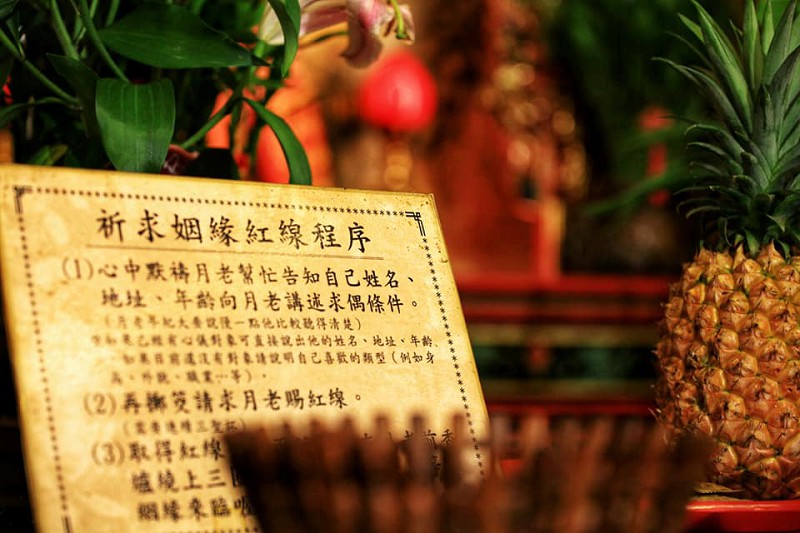 祈求姻緣紅線程序
(1)心中默禱月老幫忙告知自己姓名、
地址、年齡向月老講述求偶條件。
(月老年紀大要說慢一點他比較聽得清楚)
如果已經有心儀對象可直接說出他的姓名、地址、年齡、
如果目前還沒有對象請說明自己喜歡的類型(例如身
高、外貌、職業…等)。
(2)再擲筊請求月老賜紅線。
(需要連續三聖筊)
(3)取得紅線
爐繞上三
姻緣來臨